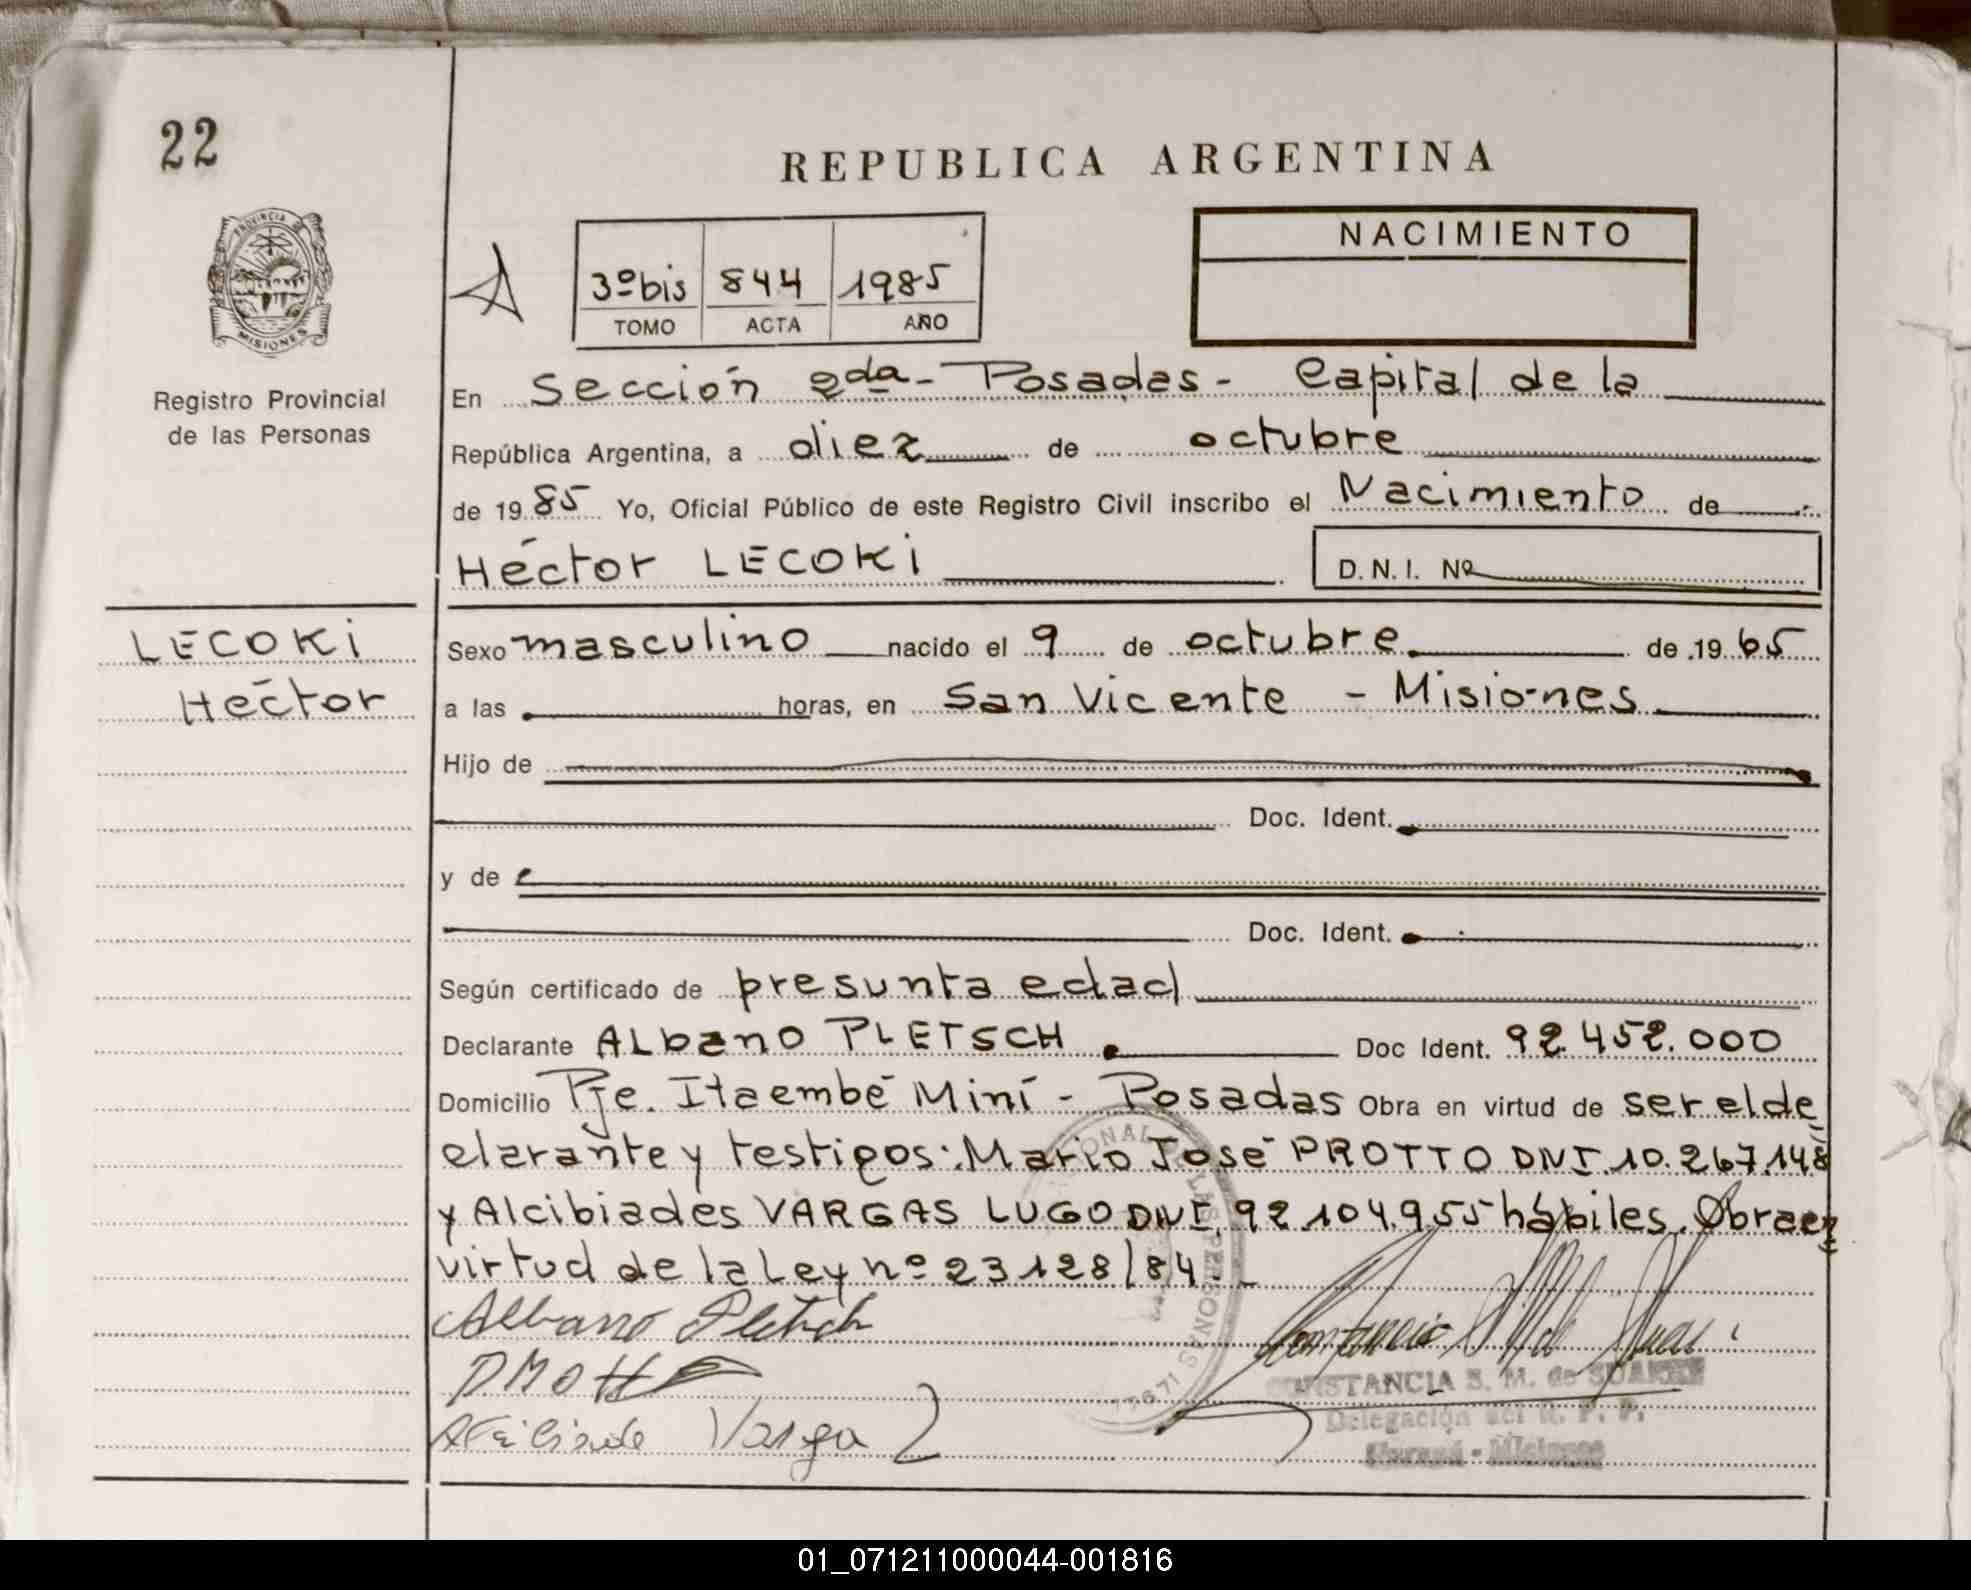 22
REPUBLICA ARGENTINA
PROVINCIA
MISIONES
Registro Provincial
de las Personas
3º bis 844 1985
TOMO ACTA AÑO
NACIMIENTO
En Sección 2da - Posadas - Capital de la
República Argentina, a diez de octubre
de 1985 Yo, Oficial Público de este Registro Civil inscribo el Nacimiento de
Héctor LECOKI D.N.I. Nº
LECOKI
Héctor
Sexo masculino nacido el 9 de octubre de 1965
a las horas, en San Vicente - Misiones
Hijo de
Doc. Ident.
y de
Doc. Ident.
Según certificado de presunta edad
Declarante ALbano PLETSCH Doc Ident. 92.452.000
Domicilio Pje. Itaembé Miní - Posadas Obra en virtud de ser el de
clarante y testigos: Mario José PROTTO DNI. 10.267.148
y Alcibiades VARGAS LUGO DNI. 92.104.955 hábiles. Obra en
virtud de la Ley nº 23128/84.-
Albano Pletsch
Vargas
CONSTANCIA S. M. de SUAREZ
Delegación del R. P. P.
Misiones
01_071211000044-001816